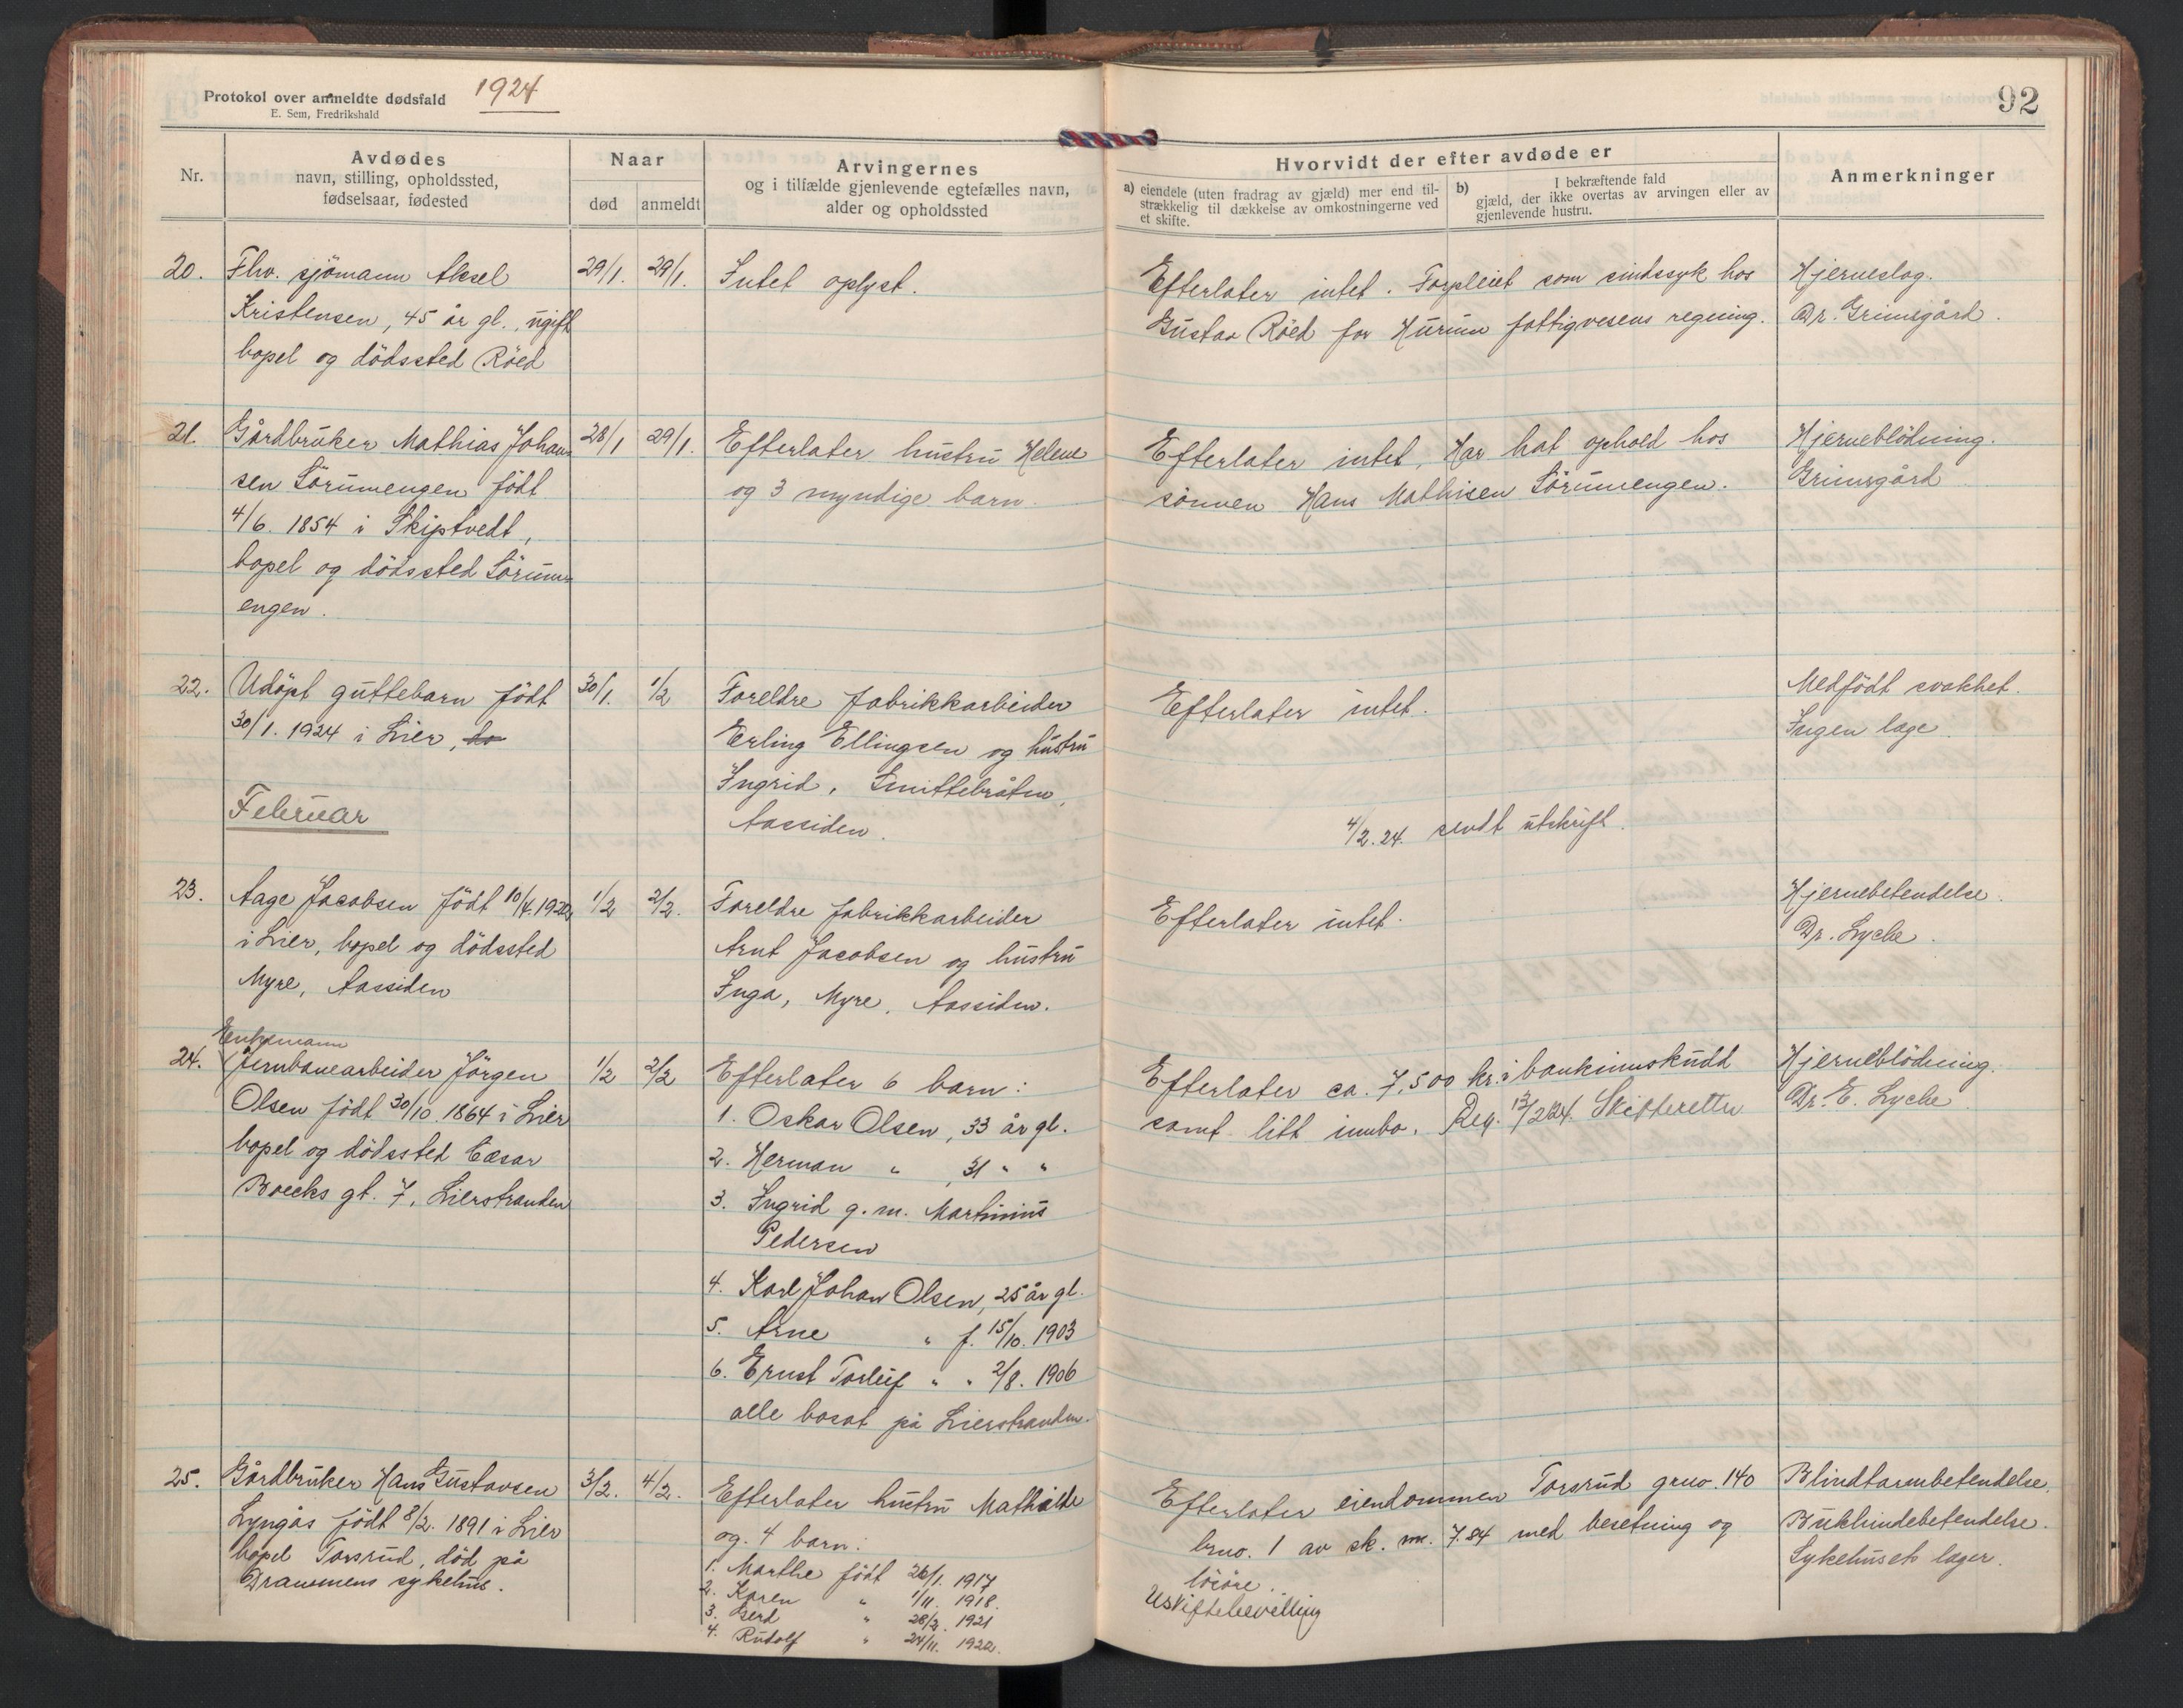 Protokol over anmeldte dødsfald 1924
E. Sem, Fredrikshald
92
Nr.
Avdødes
navn, stilling, opholdssted,
fødselsaar, fødested
Naar
død anmeldt
Arvingernes
og i tilfælde gjenlevende egtefælles navn,
alder og opholdssted
Hvorvidt der efter avdøde er
a) eiendele (uten fradrag av gjæld) mer end til-
strækkelig til dækkelse av omkostningerne ved
et skifte.
b) I bekræftende fald
gjæld, der ikke overtas av arvingen eller av
gjenlevende hustru.
Anmerkninger
20. Fhv. sjömann Aksel
Kristensen, 45 år gl., ugift
bopel og dödssted Röed
29/1. 29/1.
Intet oplyst.
Efterlater intet. Forpleiet som sindssyk hos
Gustav Röed for Hurum fattigvesens regning.
Hjerneslag.
Dr. Grimsgård.
21. Gårdbruker Mathias Johan-
sen Sörumengen født
4/6. 1854 i Skiptvedt,
bopel og dödssted Sörum-
engen.
28/1 29/1.
Efterlater hustru Helene
og 3 myndige barn.
Efterlater intet. Har hat ophold hos
sönnen Hans Mathisen Sörumengen.
Hjerneblödning.
Grimsgård
22. Udöpt guttebarn född
30/1. 1924 i Lier, do
30/1. 1/2
Foreldre fabrikkarbeider
Erling Ellingsen og hustru
Ingrid, Smittebråten,
Aassiden.
Efterlater intet.
4/2.24. sendt utskrift.
Medfödt svakhet.
Ingen læge.
Februar
23. Aage Jacobsen född 10/4.1922
i Lier, bopel og dödssted
Myre, Aassiden
1/2 2/2.
Foreldre fabrikkarbeider
Arnt Jacobsen og hustru
Inga, Myre, Aassiden.
Efterlater intet.
Hjernebetendelse.
Dr. Lyche.
Enkemann
24. Jernbanearbeider Jörgen
Olsen født 30/10. 1864 i Lier
bopel og dödssted Cæsar
Boecks gt. 7, Lierstranden
1/2 2/2
Efterlater 6 barn:
1. Oskar Olsen, 33 år gl.
2. Herman " , 31 " "
3. Ingrid g. m. Martinius
Pedersen
4. Karl Johan Olsen, 25 år gl.
5. Arne " f. 15/10. 1903
6. Ernst Torleif " " 2/8. 1906
alle bosat på Lierstranden.
Efterlater ca. 7,500 kr. i bankinnskudd
samt litt innbo. Reg. 13/2 24. Skifteretten
Hjerneblödning.
Dr. E. Lyche
25. Gårdbruker Hans Gustavsen
Lyngås født 8/2. 1891 i Lier
bopel Torsrud, död på
Drammens sykehus.
3/2. 4/2.
Efterlater hustru Mathilde
og 4 barn:
1. Marthe født 26/1. 1917
2. Karen " 1/11. 1918.
3. Gerd " 28/2. 1921
4. Rudolf " 24/11. 1922.
Efterlater eiendommen Torsrud grno. 140
brno. 1 av sk. m. 7.84 med besetning og
lösöre.
Uskiftebevilling
Blindtarmbetendelse.
Bukhindebetendelse.
Sykehusets læger.